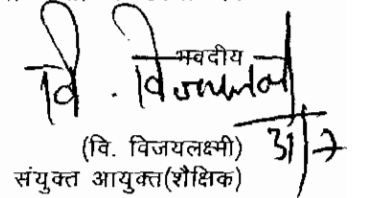 भवदीय
वि. विजयलक्ष्मी
31/7
(वि. विजयलक्ष्मी)
संयुक्त आयुक्त(शैक्षिक)